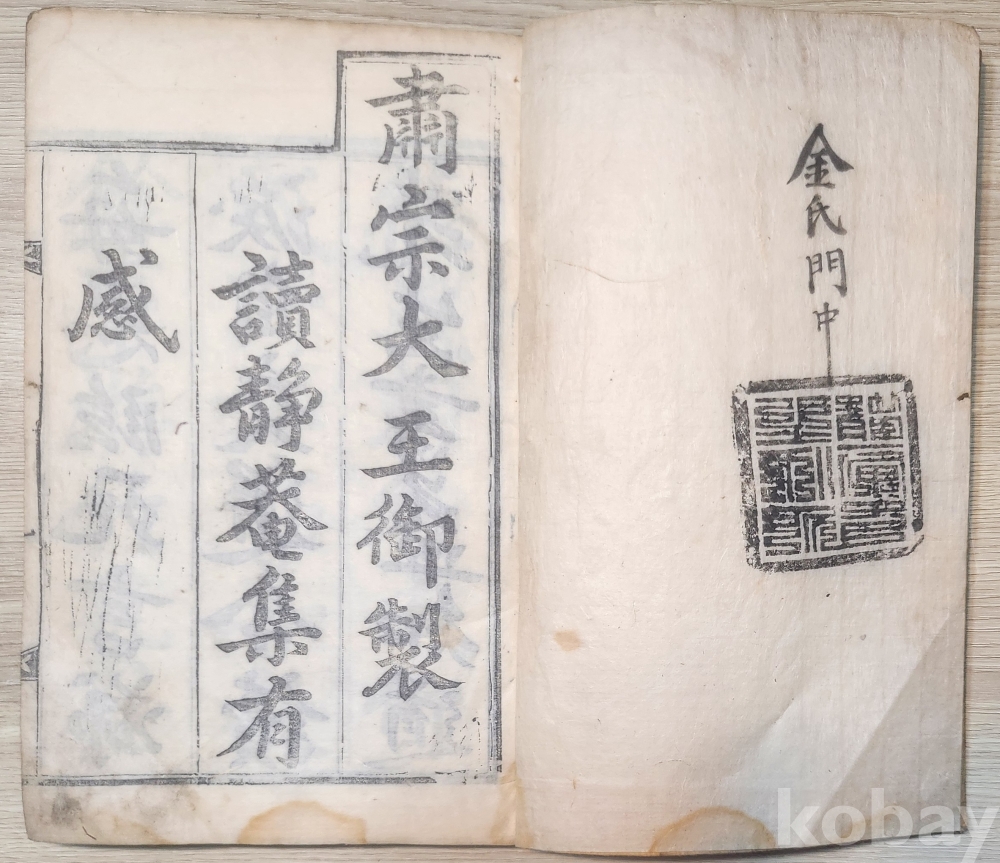 金氏門中
肅宗大王御製
讀静菴集有
感
kobay